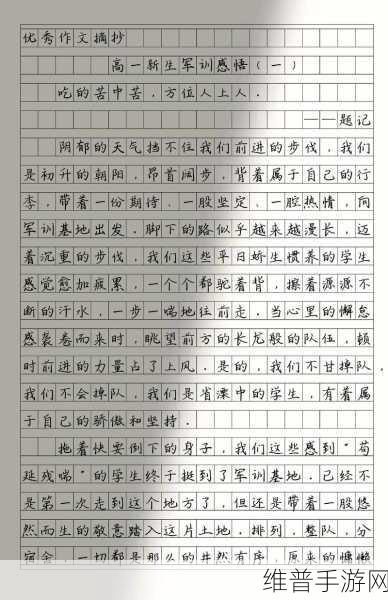 优秀作文摘抄
高一新生军训感悟(一)
吃的苦中苦，方位人上人．
——题记
阴郁的天气挡不住我们前进的步伐，我们
是初升的朝阳，昂首阔步，背着属于自己的行
李，带着一份期待，一股坚定，一腔热情，向
军训基地出发．脚下的路似乎越来越漫长，迈
着沉重的步伐，我们这些平日娇生惯养的学生
感觉愈加疲累，一个个都驼着背，擦着源源不
断的汗水，一步一喘地往前走．当心里的懈怠
感袭卷而来时，眺望前方的长龙般的队伍，顿
时前进的力量占了上风．是的，我们不甘掉队，
我们不会掉队，我们是省溧中的学生，有着属
于自己的骄傲和坚持．
拖着快要倒下的身子，我们这些感到“苟
延残喘”的学生终于挺到了军训基地．已经不
是第一次走到这个地方了，但还是带着一股悠
然而生的敬意踏入这片土地，排列，整队，分
宿舍，一切都是那么的井然有序，原来的慵懒
维普手游网